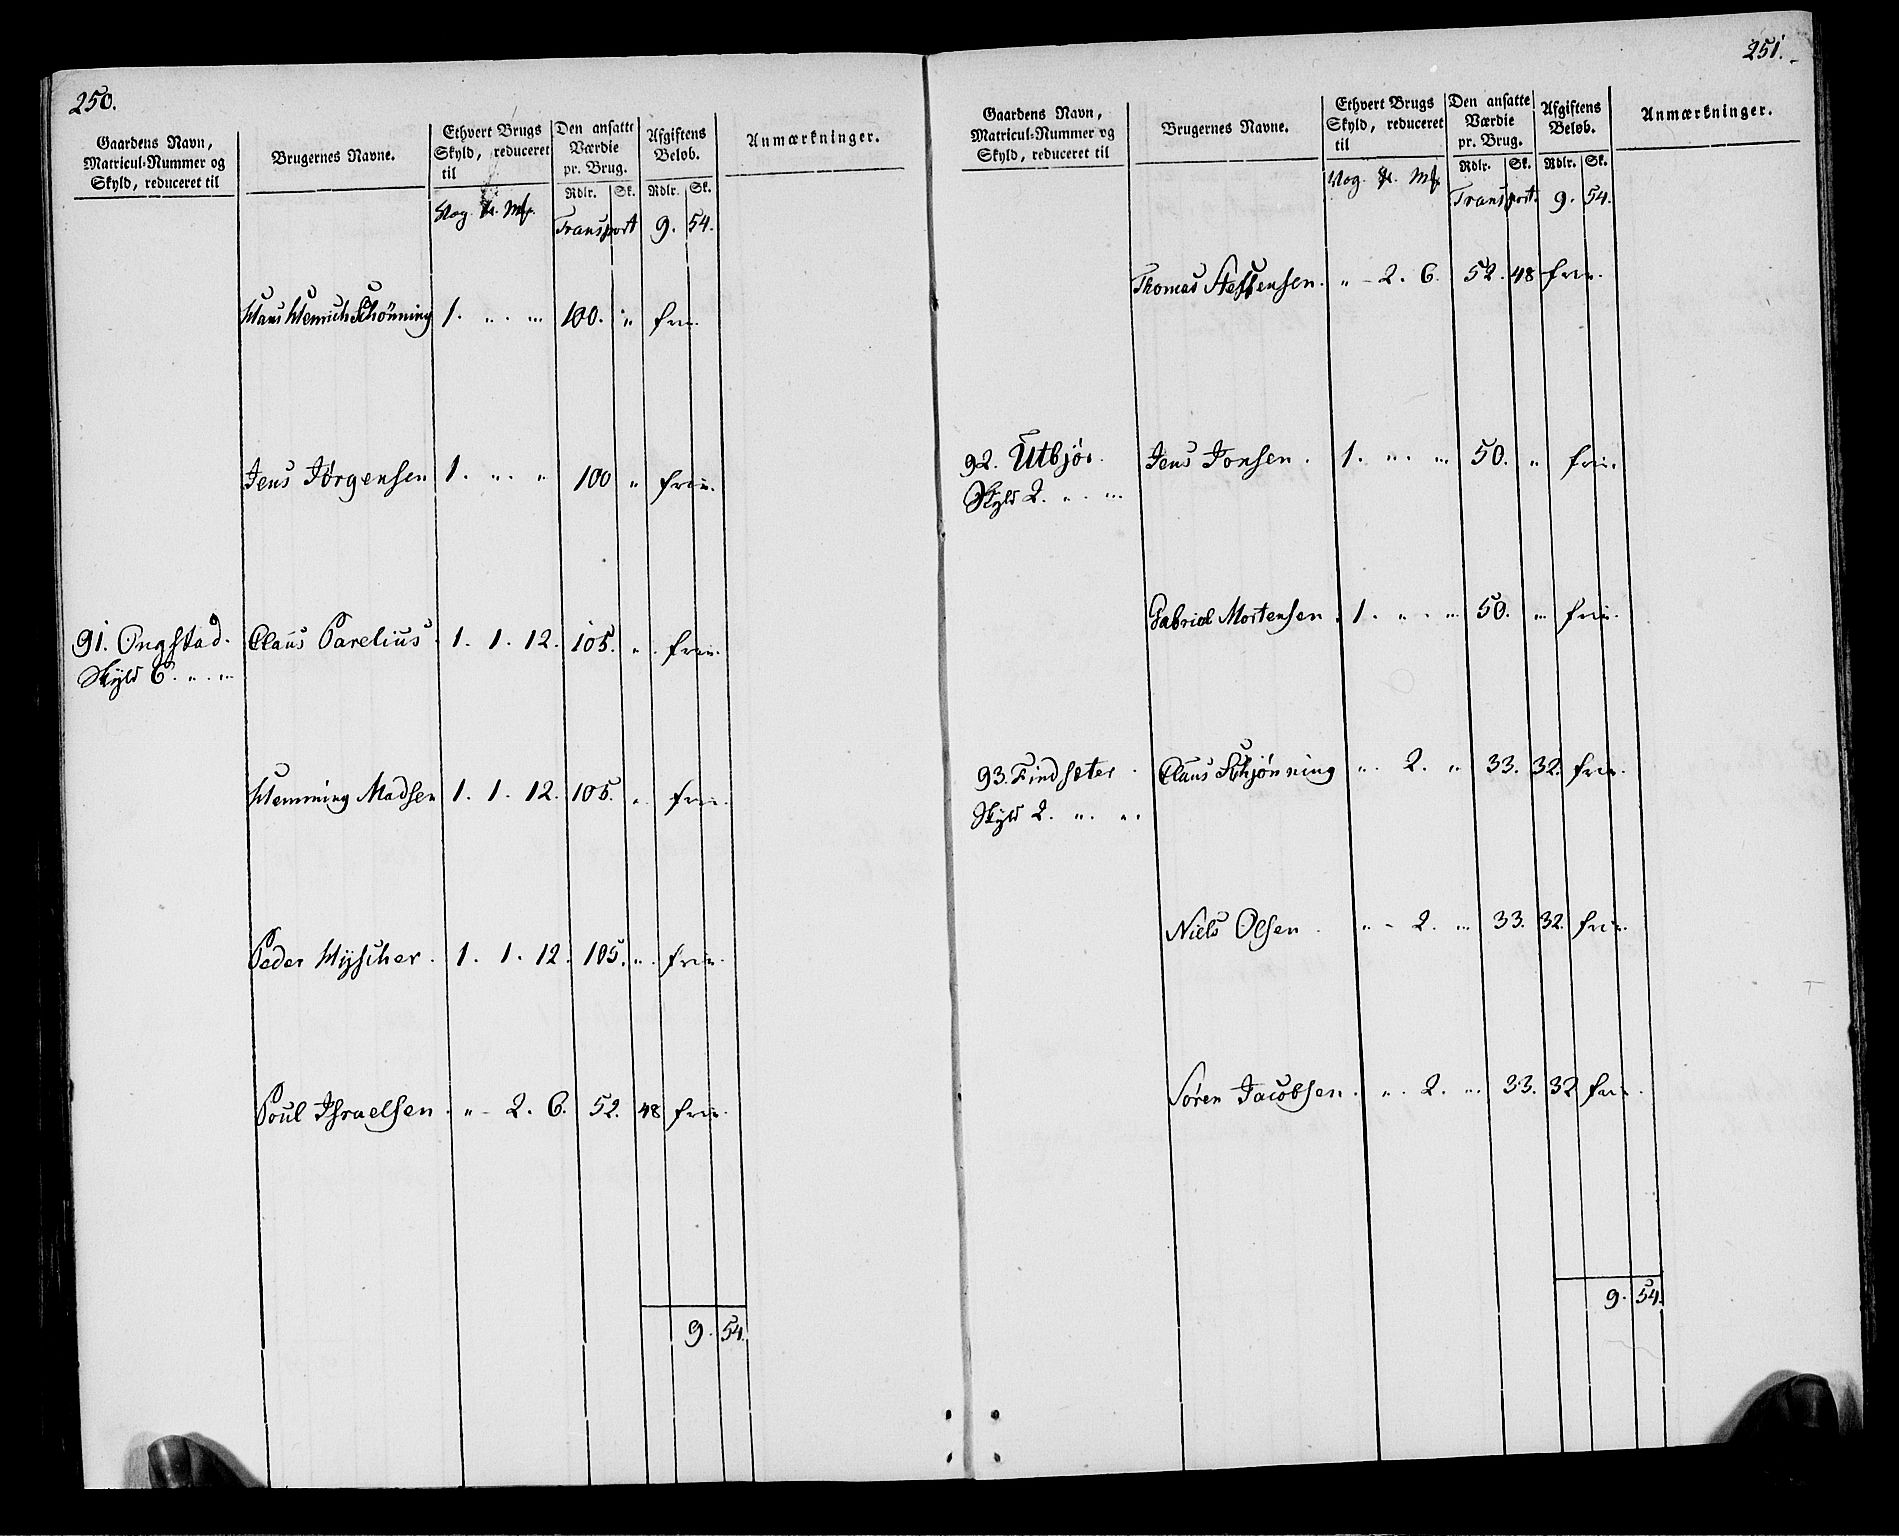 250.
Gaardens Navn, Matricul-Nummer og Skyld, reduceret til | Brugernes Navne. | Ethvert Brugs Skyld, reduceret til | Den ansatte Værdie pr. Brug. | Afgiftens Beløb. | Anmærkninger.
Rdlr. Sk. | Rdlr. Sk.
Vog. Mk. | Transport 9. 54.
Hans Henrich Schønning 1. " " 100. " frie.
Jens Jørgensen 1. " " 100 " frie.
91. Ongstad. Claus Parelius. 1. 1. 12. 105. " frie.
Skyld 6. " "
Hemming Madsen 1. 1. 12. 105. " frie.
Peder Hyscher. 1. 1. 12. 105. " frie.
Poul Israelsen. " 2. 6. 52. 48 frie.
9. 54.
251.
Gaardens Navn, Matricul-Nummer og Skyld, reduceret til | Brugernes Navne. | Ethvert Brugs Skyld, reduceret til | Den ansatte Værdie pr. Brug. | Afgiftens Beløb. | Anmærkninger.
Rdlr. Sk. | Rdlr. Sk.
Vog. Mk. | Transport. 9. 54.
Thomas Steffensen. " 2. 6. 52. 48 frie.
92. Utbjør. Jens Jonsen. 1. " " 50. " frie.
Skyld 2. " "
Gabriel Mortensen. 1. " " 50. " frie.
93. Findsæter. Claus Schjønning " 2. " 33. 32. frie.
Skyld 2. " "
Niels Olsen. " 2. " 33. 32. frie.
Søren Jacobsen. " 2. " 33. 32 frie.
9. 54.